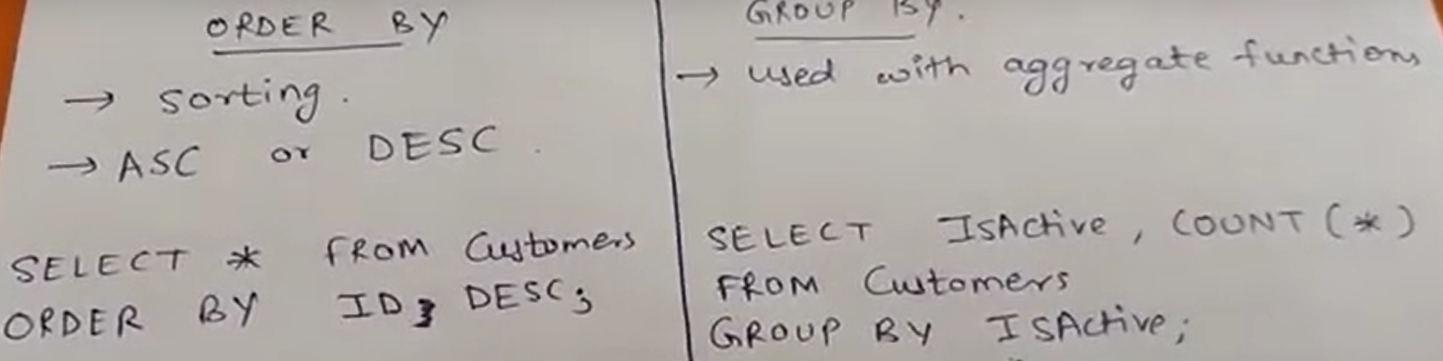 ORDER BY
→ sorting.
→ ASC or DESC.
SELECT * FROM Customers
ORDER BY ID; DESC;
GROUP BY.
→ used with aggregate functions
SELECT IsActive, COUNT(*)
FROM Customers
GROUP BY ISActive;